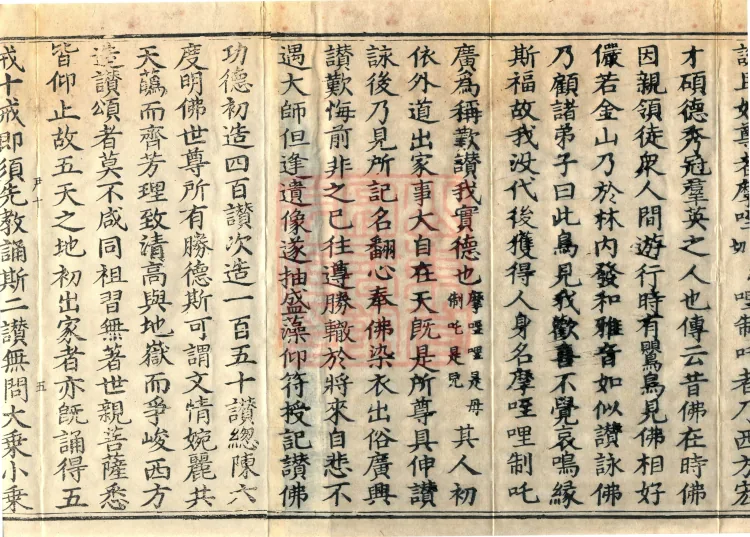 尊者摩咥哩制吒者乃西方宏
才碩德秀冠羣英之人也傳云昔佛在時佛
因親領徒衆人間遊行時有鸎鳥見佛相好
儼若金山乃於林內發和雅音如似讚詠佛
乃顧諸弟子曰此鳥見我歡喜不覺哀鳴緣
斯福故我没代後獲得人身名摩咥哩制吒
廣爲稱歎讚我實德也摩咥哩是母制吒是兒其人初
依外道出家事大自在天旣是所尊具伸讚
詠後乃見所記名翻心奉佛染衣出俗廣興
讚歎悔前非之已往遵勝轍於將來自悲不
遇大師但逢遺像遂抽盛藻仰符授記讚佛
功德初造四百讚次造一百五十讚總陳六
度明佛世尊所有勝德斯可謂文情婉麗共
天蘤而齊芳理致清高與地嶽而爭峻西方
造讚頌者莫不咸同祖習無著世親菩薩悉
皆仰止故五天之地初出家者亦旣誦得五
尹十 五
戒十戒即須先教誦斯二讚無問大乘小乘